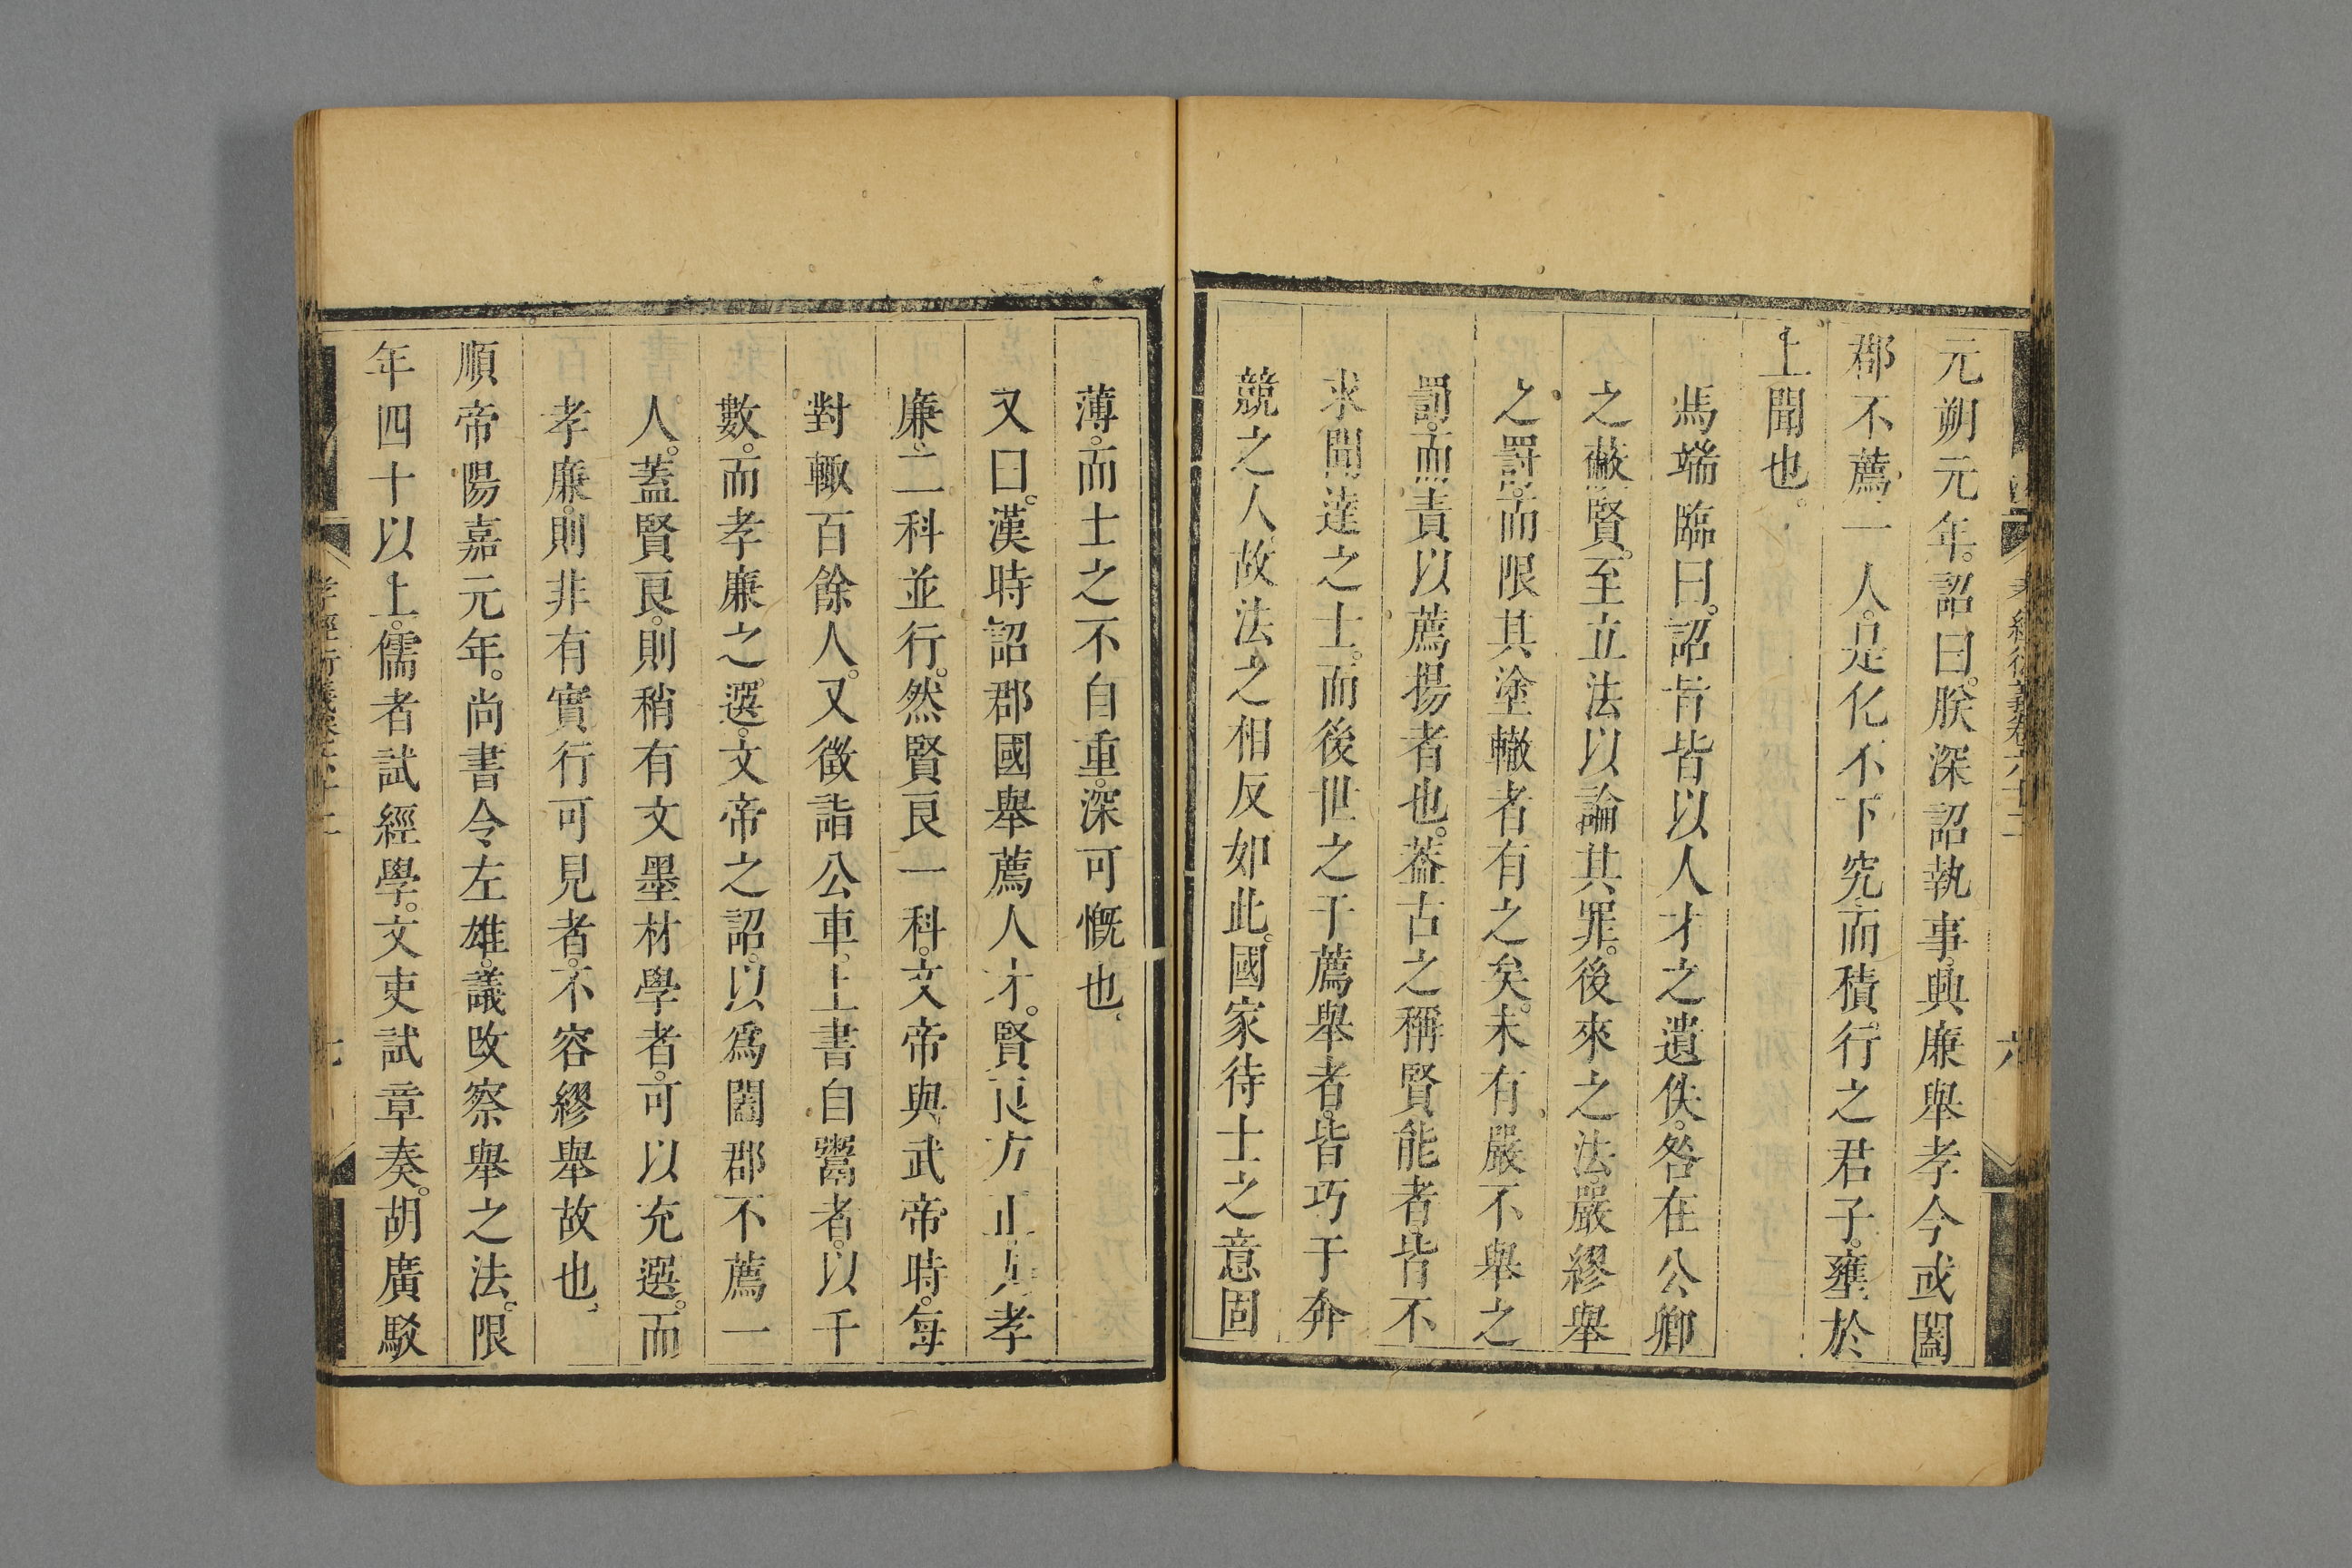 元朔元年。詔曰。朕深詔執事。興廉舉孝今或闔
郡不薦一人。是化不下究而積行之君子。壅於
上聞也。
馬端臨曰。詔旨皆以人才之遺佚。咎在公卿
之蔽賢。至立法以論其罪。後來之法。嚴繆舉
之罰。而限其塗轍者有之矣。未有嚴不舉之
罰。而責以薦揚者也。蓋古之稱賢能者皆不
求聞達之士。而後世之于薦舉者。皆巧于奔
競之人故法之相反如此。國家待士之意固
薄。而士之不自重。深可慨也。
又曰。漢時詔郡國舉薦人才。賢良方正與孝
廉二科並行。然賢良一科。文帝與武帝時。每
對輙百餘人。又徵詣公車。上書自鬻者。以千
數。而孝廉之選。文帝之詔。以爲闔郡不薦一
人。蓋賢良。則稍有文墨材學者。可以充選。而
孝廉。則非有實行可見者。不容繆舉故也。
順帝陽嘉元年。尚書令左雄。議改察舉之法。限
年四十以上。儒者試經學。文吏試章奏。胡廣駁
孝經衍義卷六十二
六
孝經衍義卷六十二
七